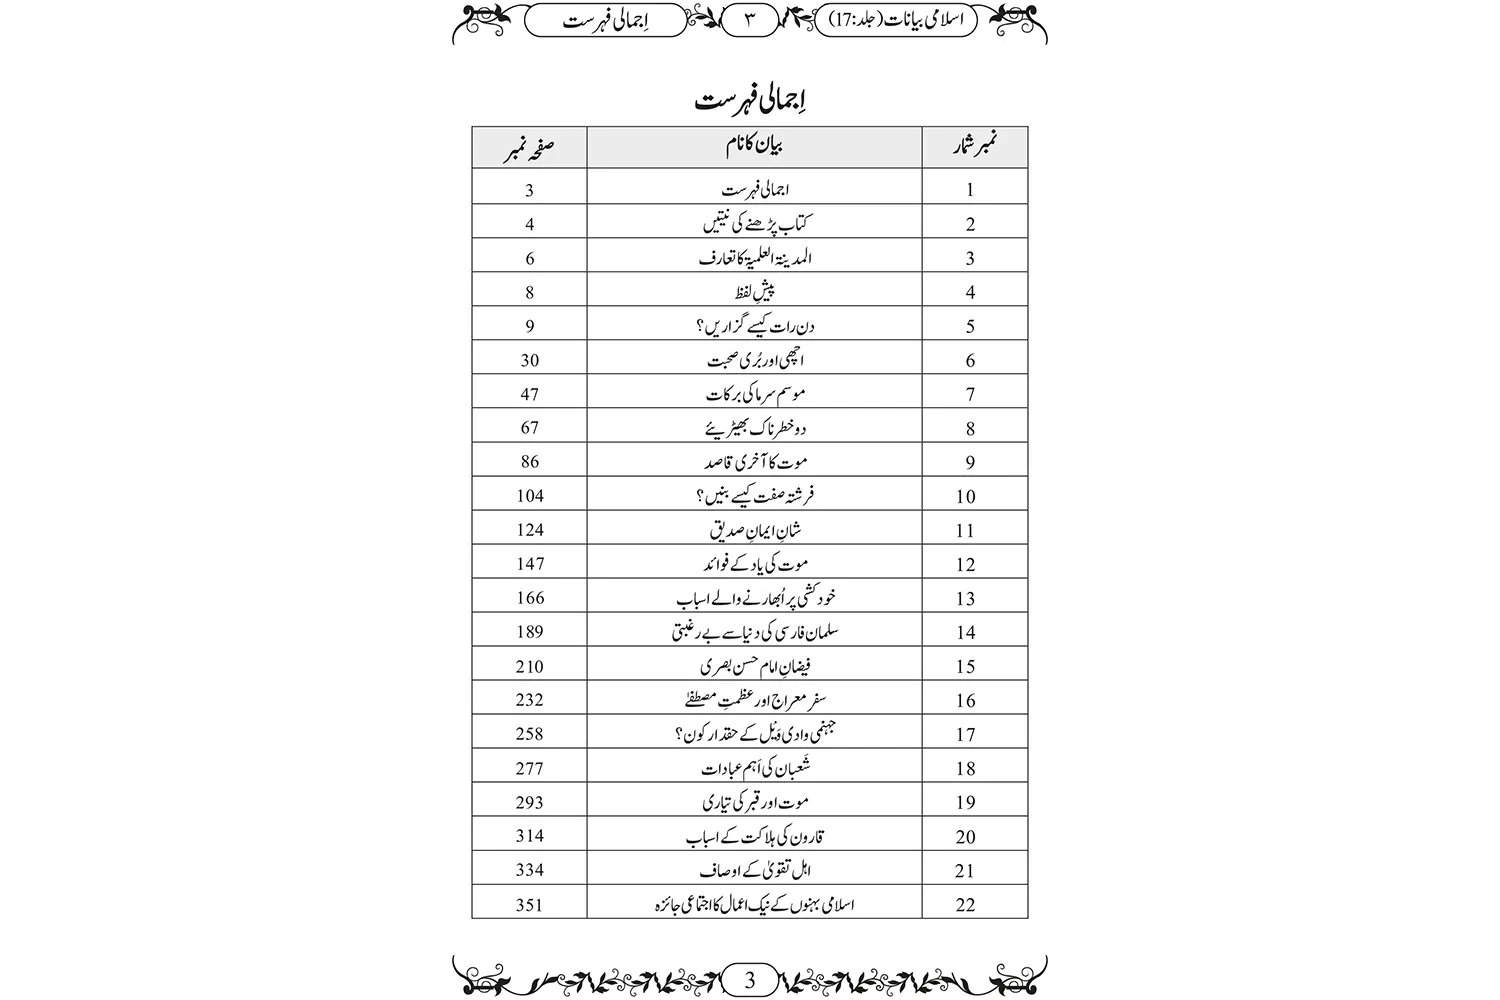 اسلامی بیانات (جلد:17) ۳ اِجمالی فہرست
اِجمالی فہرست
نمبر شمار بیان کا نام صفحہ نمبر
1 اجمالی فہرست 3
2 کتاب پڑھنے کی نیتیں 4
3 المدینۃ العلمیۃ کا تعارف 6
4 پیشِ لفظ 8
5 دن رات کیسے گزاریں؟ 9
6 اچھی اور بُری صحبت 30
7 موسم سرما کی برکات 47
8 دو خطرناک بھیڑیئے 67
9 موت کا آخری قاصد 86
10 فرشتہ صفت کیسے بنیں؟ 104
11 شانِ ایمانِ صدیق 124
12 موت کی یاد کے فوائد 147
13 خودکشی پر اُبھارنے والے اسباب 166
14 سلمان فارسی کی دنیا سے بے رغبتی 189
15 فیضانِ امام حسن بصری 210
16 سفر معراج اور عظمتِ مصطفےٰ 232
17 جہنمی وادی وَیْل کے حقدار کون؟ 258
18 شَعبان کی اَہم عبادات 277
19 موت اور قبر کی تیاری 293
20 قارون کی ہلاکت کے اسباب 314
21 اہل تقویٰ کے اوصاف 334
22 اسلامی بہنوں کے نیک اعمال کا اجتماعی جائزہ 351
3